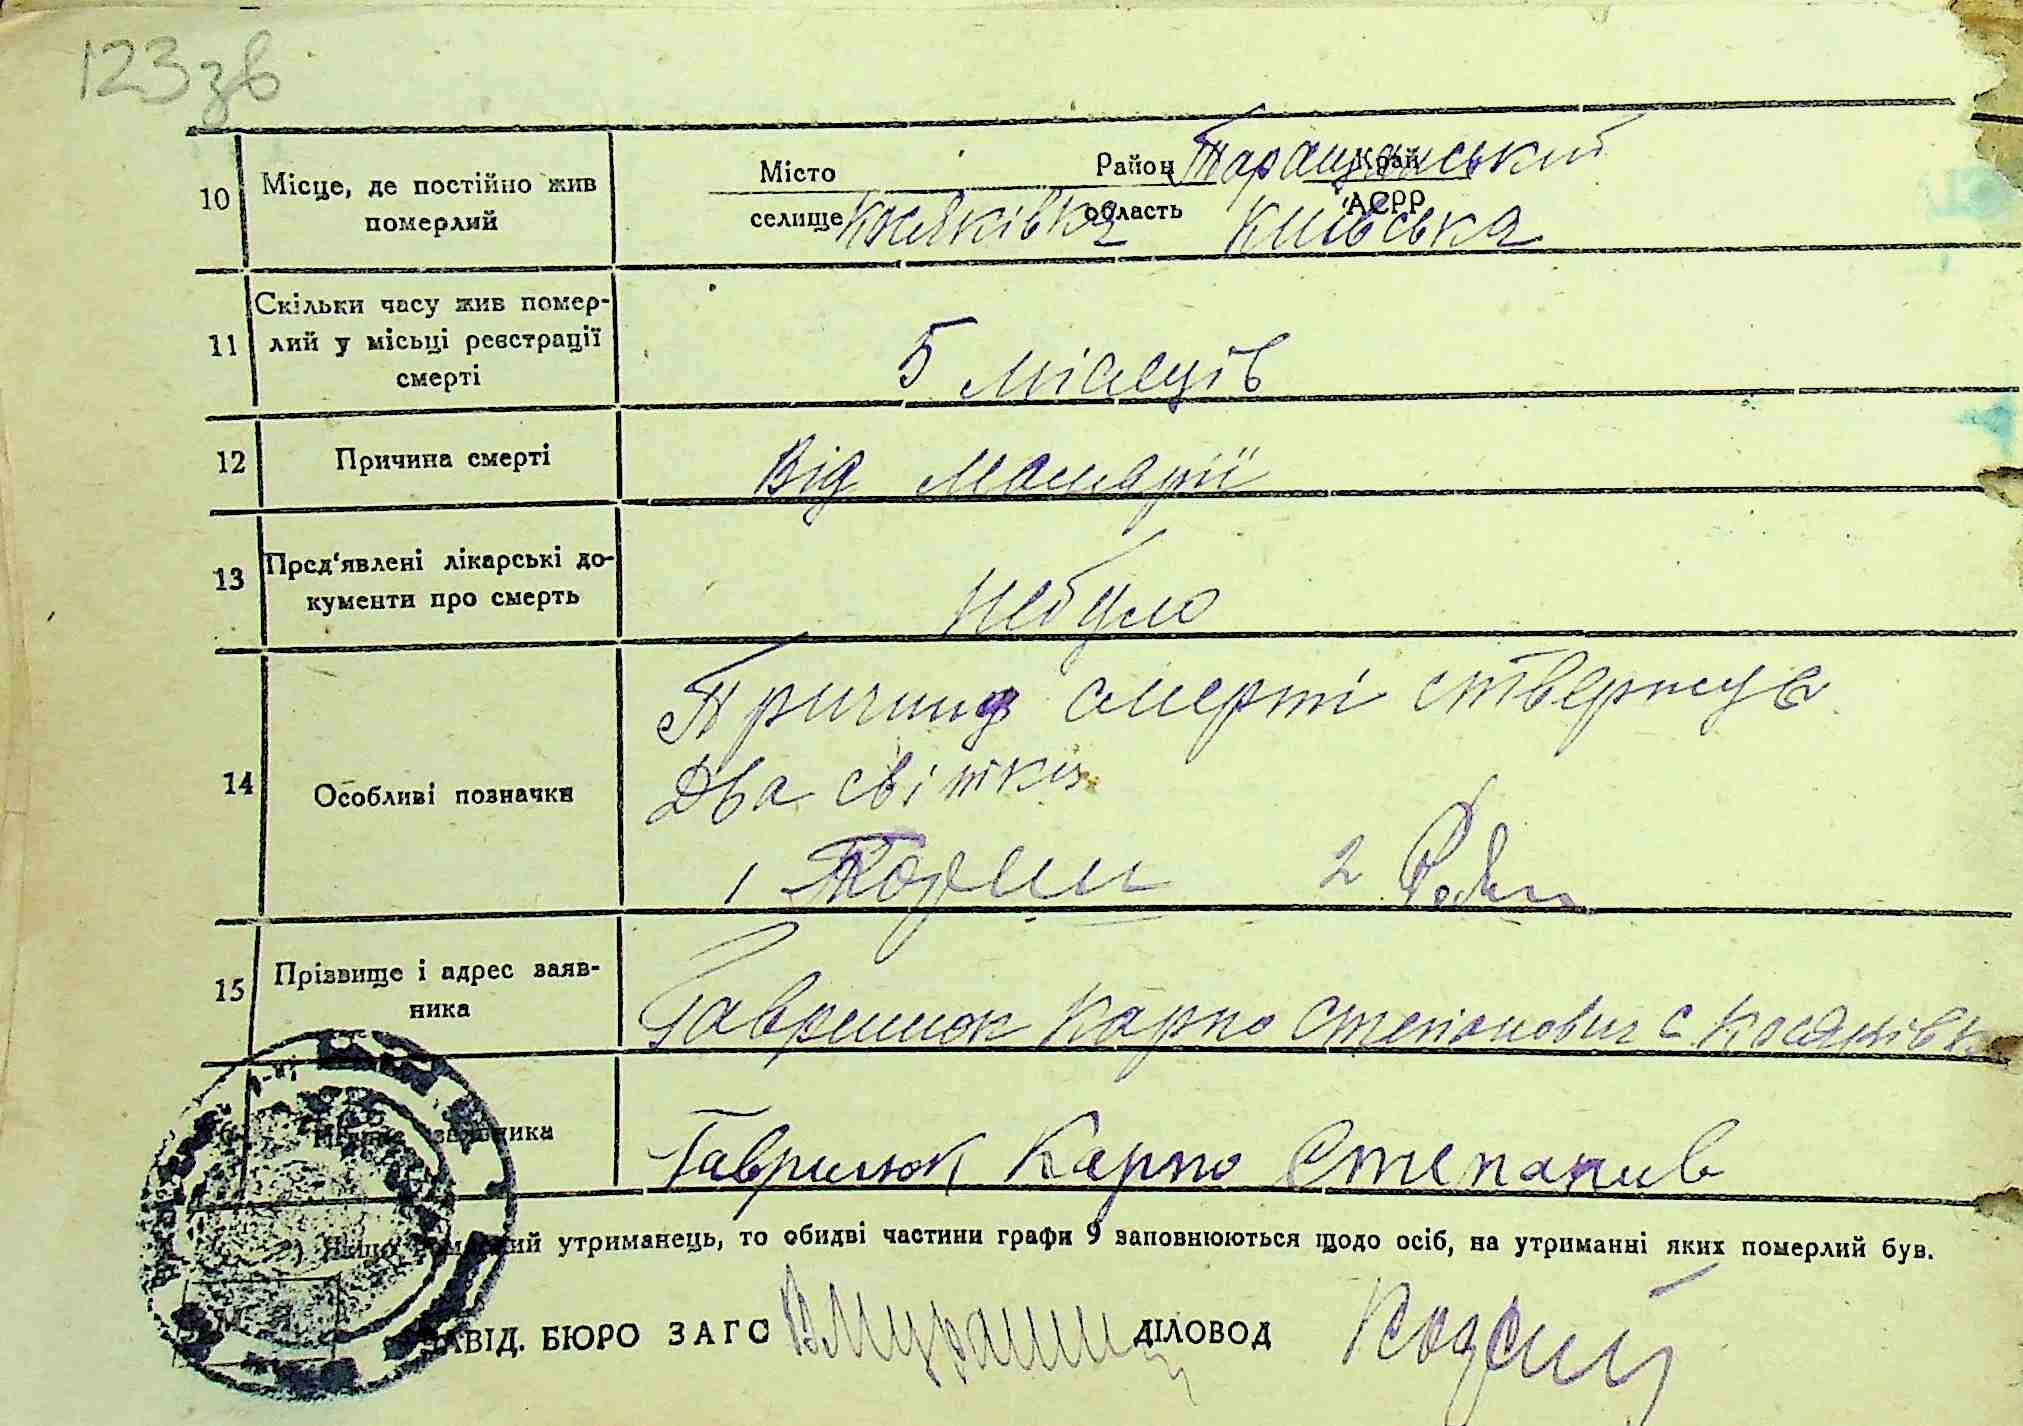 123зв
10 Місце, де постійно жив
померлий
Місто Район Таращанський Край
селище Косяківка область Київська АСРР
11 Скільки часу жив помер-
лий у місьці реєстрації
смерті
5 місяців
12 Причина смерті Від Малярії
13 Пред'явлені лікарські до-
кументи про смерть
Небуло
14 Особливі позначки
Причину смерті ствержує
Два світки
1 2
15 Прізвище і адрес заяв-
ника
Гаврилюк Карпо Степанович с Косяківка
заявника Гаврилюк Карпо Степанив
) Якщо померлий утриманець, то обидві частини графи 9 заповнюються щодо осіб, на утриманні яких померлий був.
ЗАВІД. БЮРО ЗАГС ДІЛОВОД